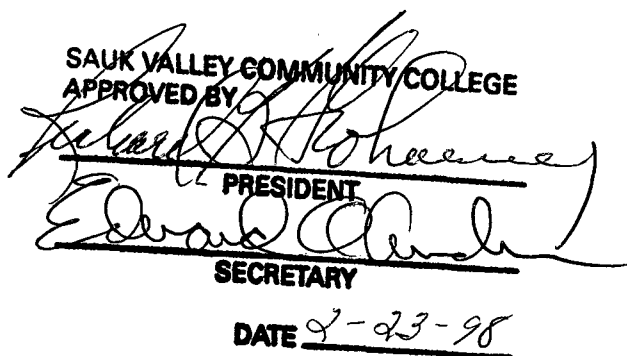 SAUK VALLEY COMMUNITY COLLEGE
APPROVED BY
Richard
PRESIDENT
Edward
SECRETARY
DATE 2-23-98